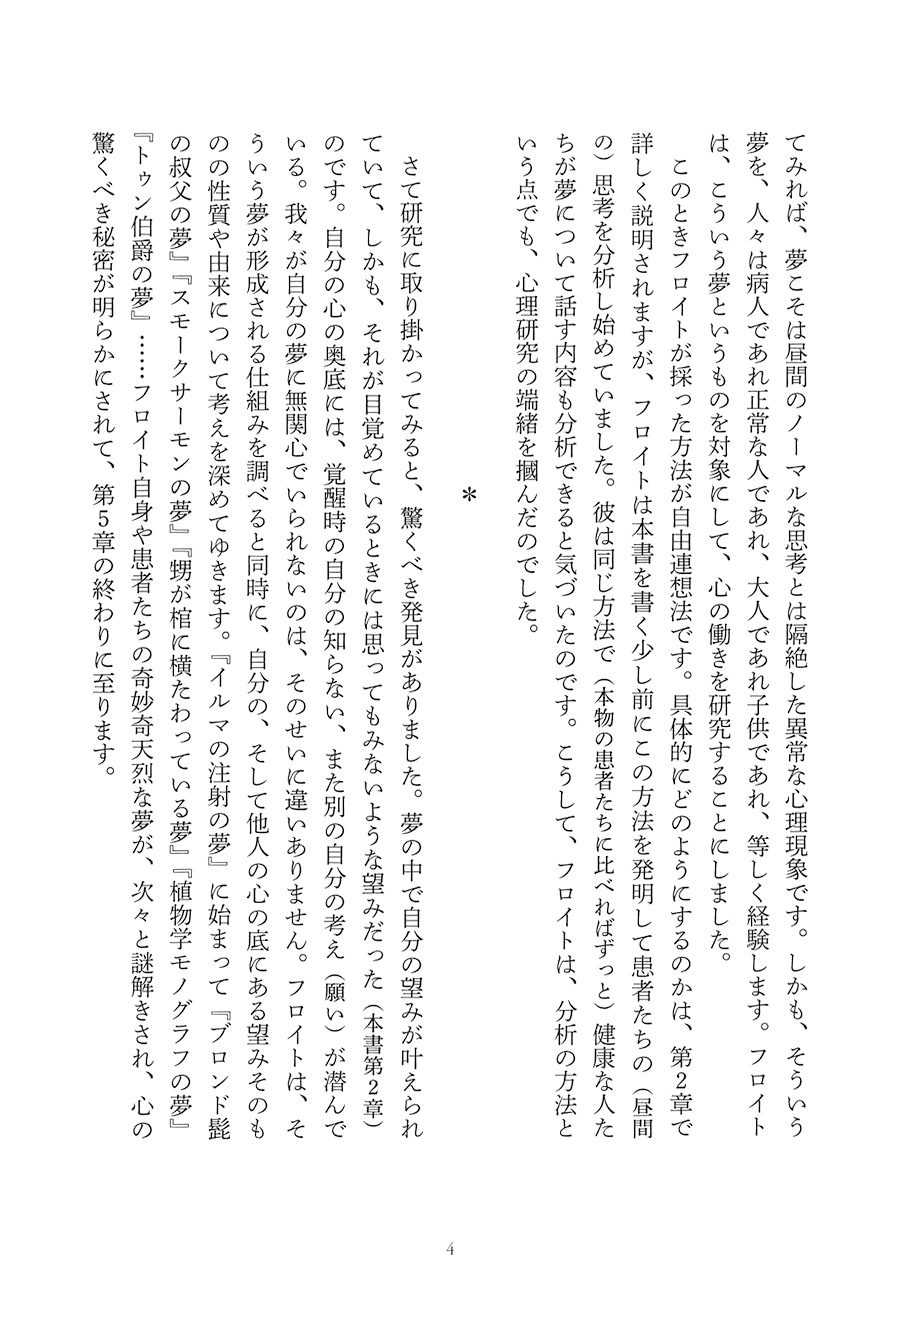 てみれば、夢こそは昼間のノーマルな思考とは隔絶した異常な心理現象です。しかも、そういう
夢を、人々は病人であれ正常な人であれ、大人であれ子供であれ、等しく経験します。フロイト
は、こういう夢というものを対象にして、心の働きを研究することにしました。
このときフロイトが採った方法が自由連想法です。具体的にどのようにするのかは、第2章で
詳しく説明されますが、フロイトは本書を書く少し前にこの方法を発明して患者たちの（昼間
の）思考を分析し始めていました。彼は同じ方法で（本物の患者たちに比べればずっと）健康な人た
ちが夢について話す内容も分析できると気づいたのです。こうして、フロイトは、分析の方法と
いう点でも、心理研究の端緒を摑んだのでした。
＊
さて研究に取り掛かってみると、驚くべき発見がありました。夢の中で自分の望みが叶えられ
ていて、しかも、それが目覚めているときには思ってもみないような望みだった（本書第2章）
のです。自分の心の奥底には、覚醒時の自分の知らない、また別の自分の考え（願い）が潜んで
いる。我々が自分の夢に無関心でいられないのは、そのせいに違いありません。フロイトは、そ
ういう夢が形成される仕組みを調べると同時に、自分の、そして他人の心の底にある望みそのも
のの性質や由来について考えを深めてゆきます。『イルマの注射の夢』に始まって『ブロンド髭
の叔父の夢』『スモークサーモンの夢』『甥が棺に横たわっている夢』『植物学モノグラフの夢』
『トゥン伯爵の夢』……フロイト自身や患者たちの奇妙奇天烈な夢が、次々と謎解きされ、心の
驚くべき秘密が明らかにされて、第5章の終わりに至ります。
4